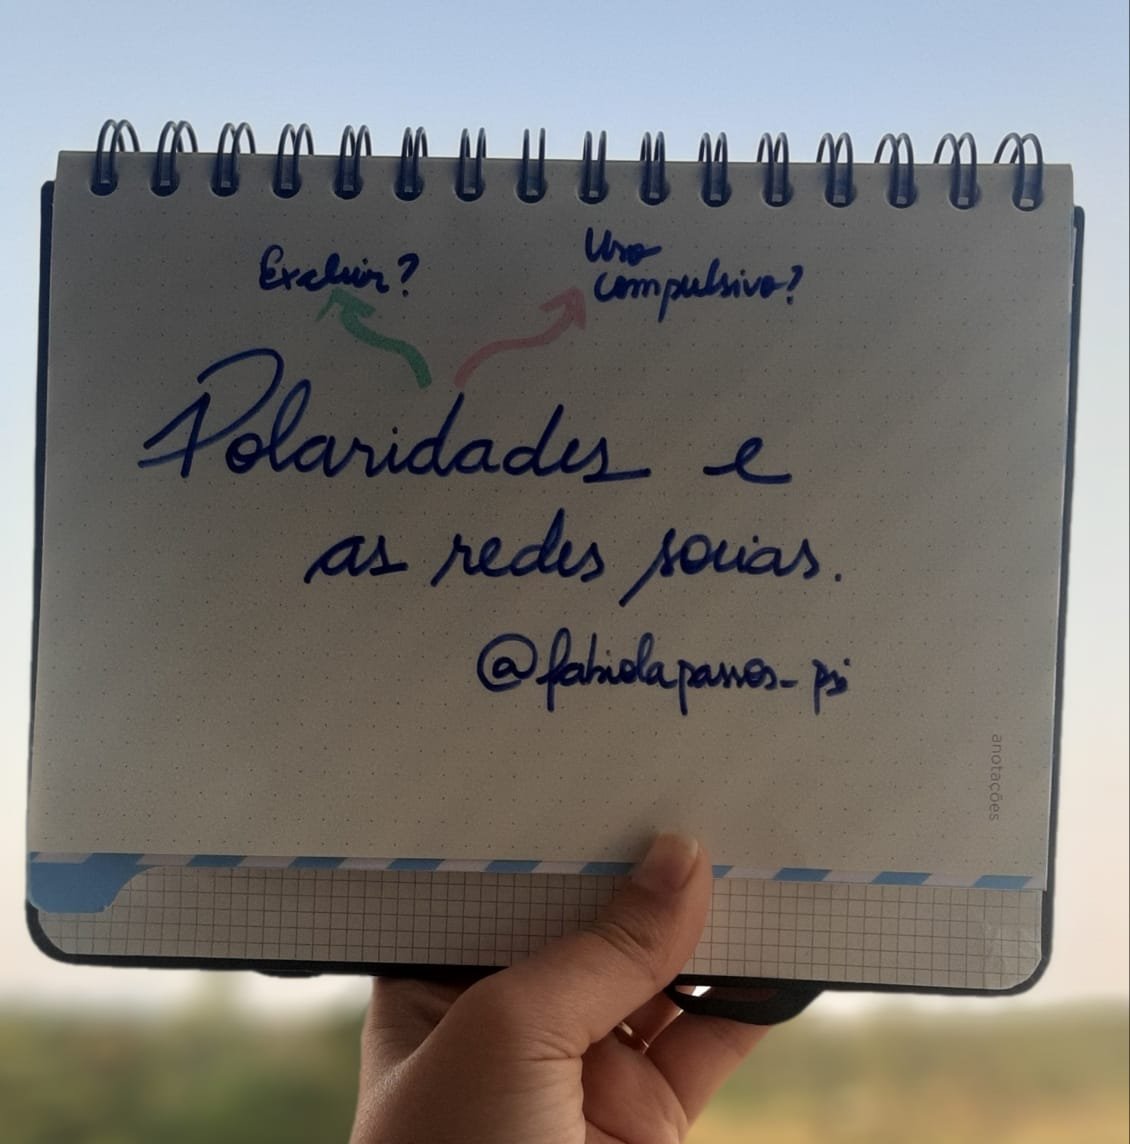 Excluir?
Uso
compulsivo?
Polaridades e
as redes socias.
@fabiolapassos_psi
anotações